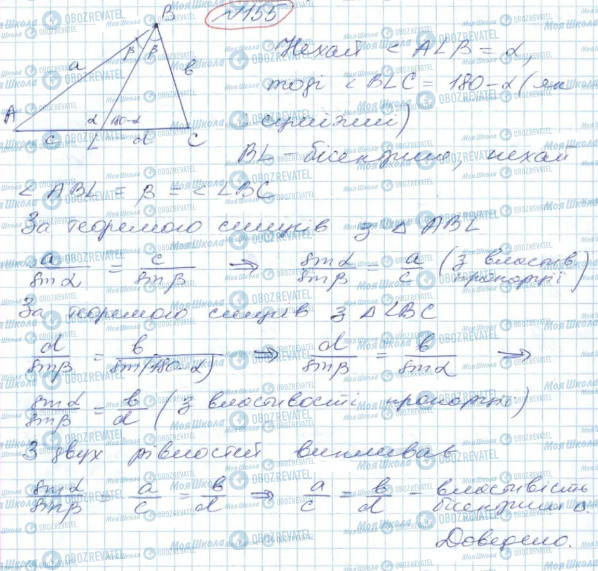 №155
B
β β
a
b
A
α
180-α
c
L
d
C
Нехай < ALB = α,
тоді < BLC = 180-α (як
суміжний)
BL - бісектриса, нехай
< ABL = β = < LBC
За теоремою синусів з △ ABL
a/sinα = c/sinβ => sinα/sinβ = a/c (з властив пропорції)
За теоремою синусів з △LBC
d/sinβ = b/sin(180-α) => d/sinβ = b/sinα =>
sinα/sinβ = b/d (з властивості пропорції)
З двух рівностей випливає
sinα/sinβ = a/c = b/d => a/c = b/d - властивість бісектриси △
Доведено.